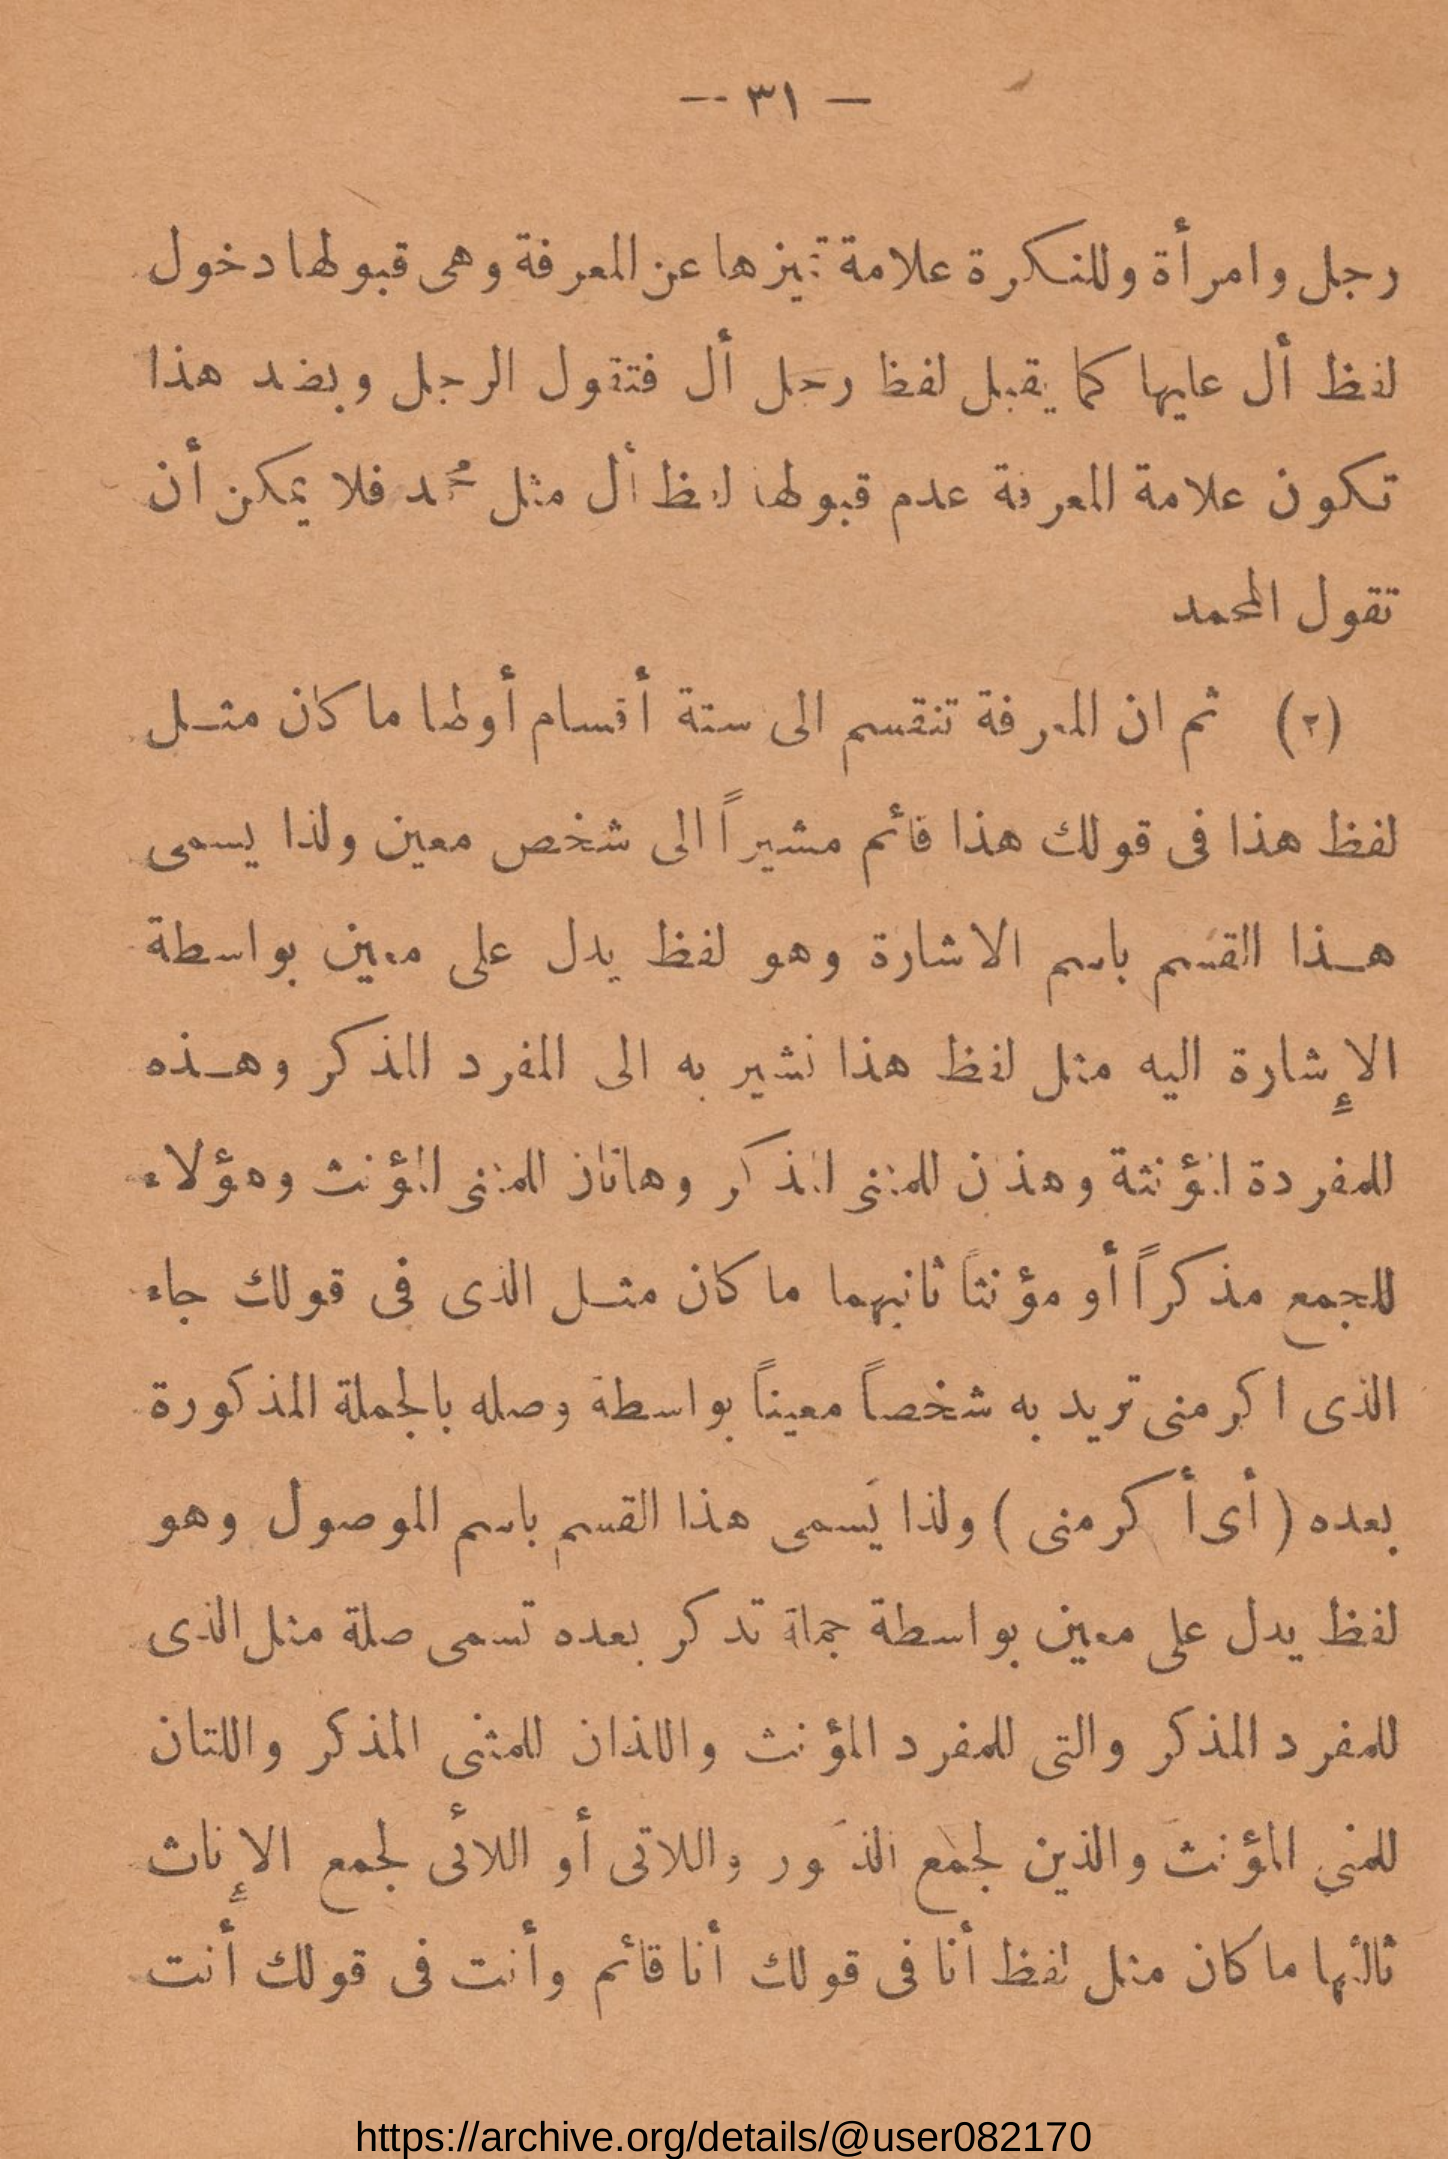 — ٣١ —
رجل وامرأة وللنكرة علامة تميزها عن المعرفة وهى قبولها دخول
لفظ أل عليها كما يقبل لفظ رجل أل فتقول الرجل وبضد هذا
تكون علامة المعرفة عدم قبولها لفظ أل مثل محمد فلا يمكن أن
تقول المحمد
(٢) ثم ان المعرفة تنقسم الى ستة أقسام أولها ما كان مثل
لفظ هذا فى قولك هذا قائم مشيراً الى شخص معين ولذا يسمى
هذا القسم باسم الاشارة وهو لفظ يدل على معين بواسطة
الإشارة اليه مثل لفظ هذا نشير به الى المفرد المذكر وهذه
للمفردة المؤنثة وهذان للمثنى المذكر وهاتان للمثنى المؤنث وهؤلاء
للجمع مذكراً أو مؤنثاً ثانيهما ما كان مثل الذى فى قولك جاء
الذى اكرمنى تريد به شخصاً معيناً بواسطة وصله بالجملة المذكورة
بعده ( أى أكرمنى ) ولذا يسمى هذا القسم باسم الموصول وهو
لفظ يدل على معين بواسطة جملة تذكر بعده تسمى صلة مثل الذى
للمفرد المذكر والتى للمفرد المؤنث واللذان للمثنى المذكر واللتان
للمثنى المؤنث والذين لجمع الذكور واللاتى أو اللائى لجمع الإناث
ثالثها ما كان مثل لفظ أنا فى قولك أنا قائم وأنت فى قولك أنت
https://archive.org/details/@user082170